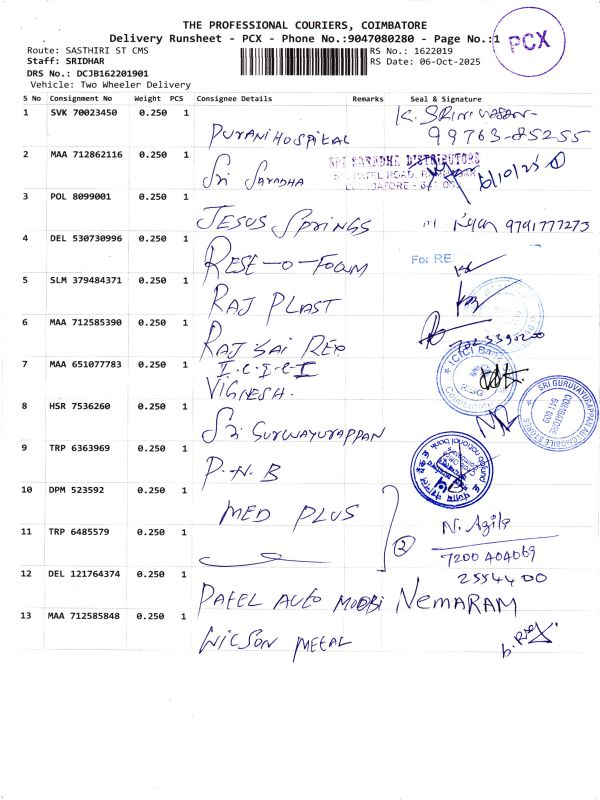 THE PROFESSIONAL COURIERS, COIMBATORE
Delivery Runsheet - PCX - Phone No.:9047080280 - Page No.:1
PCX
Route: SASTHIRI ST CMS
RS No.: 1622019
Staff: SRIDHAR
RS Date: 06-Oct-2025
DRS No.: DCJB162201901
Vehicle: Two Wheeler Delivery
S No Consignment No Weight PCS Consignee Details Remarks Seal & Signature
1 SVK 70023450 0.250 1 PURANI HOSPITAL K. SRINIVASAN 99763-85255
2 MAA 712862116 0.250 1 Sri SARADHA SRI SARADHA DISTRIBUTORS 6/10/25
3 POL 8099001 0.250 1 JESUS SPRINGS 9791777273
4 DEL 530730996 0.250 1 RESE-O-FOAM For RE
5 SLM 379484371 0.250 1 RAJ PLAST
6 MAA 712585390 0.250 1 RAJ SAI REX
7 MAA 651077783 0.250 1 I.C.I.C.I VIGNESH. ICICI BANK
8 HSR 7536260 0.250 1 Sri GURUVAYURAPPAN SRI GURUVAYURAPPAN AUTOMOBILE STORES COIMBATORE
9 TRP 6363969 0.250 1 P.N.B punjab national bank
10 DPM 523592 0.250 1 MED PLUS
11 TRP 6485579 0.250 1 2 N. Agila 7200404069
12 DEL 121764374 0.250 1 PATEL AUTO MOOBI NEMARAM 2554400
13 MAA 712585848 0.250 1 WILSON METAL